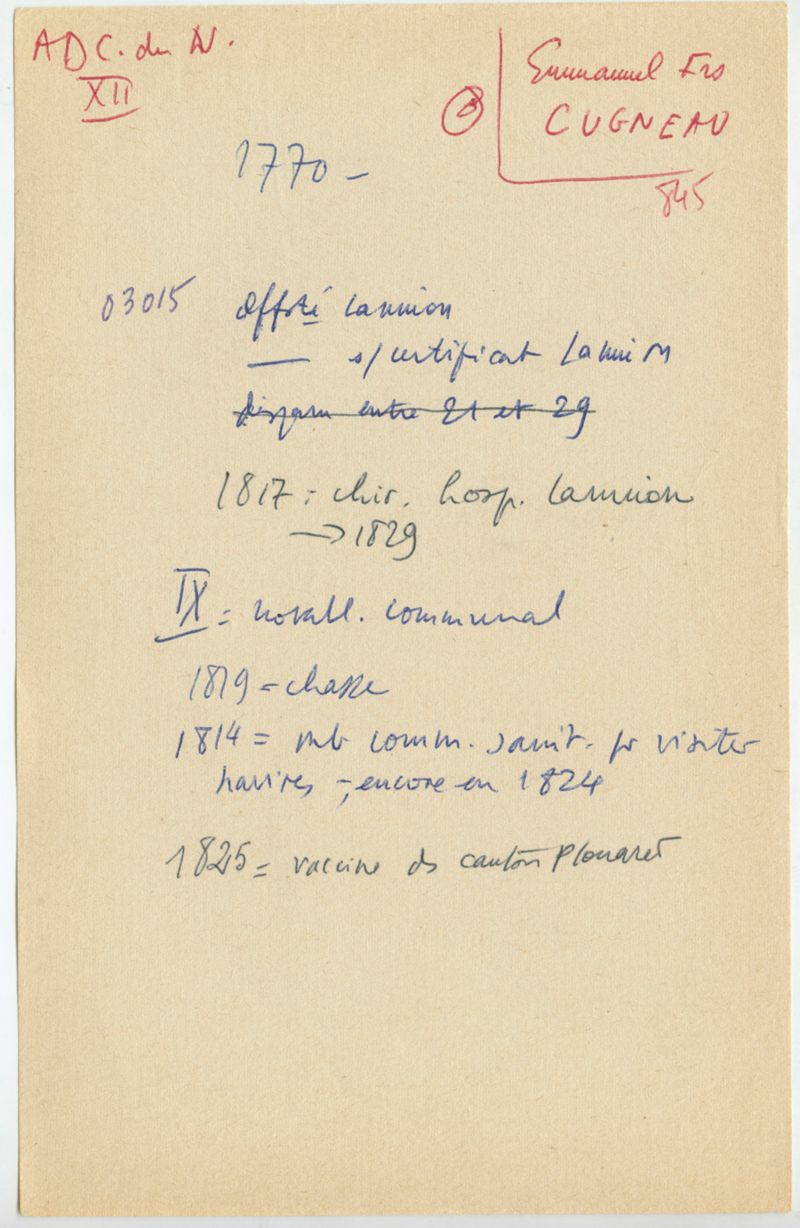 ADC. du N.
XII
Emmanuel Frs
CUGNEAU
845
1770 -
03015 Offté Lannion
— s/certificat Lannion
disparu entre 21 et 29
1817 = chir. hosp. Lannion
→ 1829
IX = notabl. communal
1819 = chasse
1814 = mb comm. sanit. pr visiter
navires -, encore en 1824
1825 = vaccine ds canton Plouaret